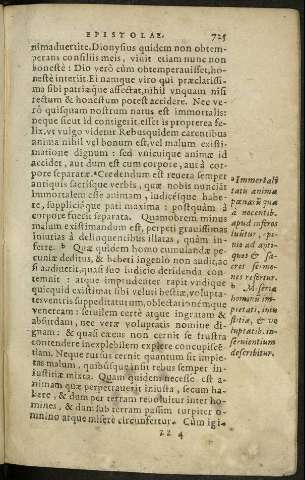 EPISTOLAE. 725
nimaduertite. Dionysius quidem non obtem-
perans consiliis meis, viuit etiam nunc non
honestè: Dio verò cùm obtemperauisset, ho-
nestè interiit. Ei namque viro qui præclarissi-
ma sibi patriæque affectat, nihil vnquam nisi
rectum & honestum potest accidere. Nec ve-
rò quisquam nostrum natus est immortalis:
neque sicut id contigerit, esset is proprerea fe-
lix, vt vulgo videtur. Rebus quidem carentibus
anima nihil vel bonum est, vel malum existi-
matione dignum: sed vnicuique animæ id
accidet, aut dum est cum corpore, aut à cor-
pore separatæ. ᵃCredendum est reuera semper
antiquis sacrisque verbis, quæ nobis nunciāt
immortalem esse animam, iudicésque habe-
re, supplicióque pati maxima: postquàm à
corpore fuerit separata. Quamobrem minus
malum existimandum est, perpeti grauissimas
iniurias à delinquentibus illatas, quàm in-
ferre. ᵇ Quæ quidem homo cumulandæ pe-
cuniæ deditus, & habeti ingenio non audit, ac
si audiuerit, quasi suo iudicio deridenda con-
temnit: atque imprudenter rapit vndique
quicquid existimat sibi velut bestiæ, volupta-
tes ventris suppeditaturum, oblectationémque
veneream: seruilem certè atque ingratam &
absurdam, nec veræ voluptatis nomine di-
gnam: & quasi cæcus non cernit se frustra
contendere inexplebilem explere concupiscē-
tiam. Neque rursus cernit quantum sit impie-
tas malum, quibúsque insit rebus semper in-
iustitiæ mixta. Quam quidem necesse est a-
nimam quæ perpetrauerit iniusta, secum ha-
bere, & dum per terram reuoluitur inter ho-
mines, & dum sub terram passim turpiter o-
mnino atque miserè circunfertur. Cùm igi-
zz 4
ᵃ Immortali
tatē animæ
pœnas què
à nocentib.
apud inferos
luitur, o-
nio ad anti-
quos & sa-
cros sermo-
nes refertur.
ᵇ Miseria
hominū im
pietati, iniu
stitiæ, & vo
luptatib. in-
seruientium
describitur.